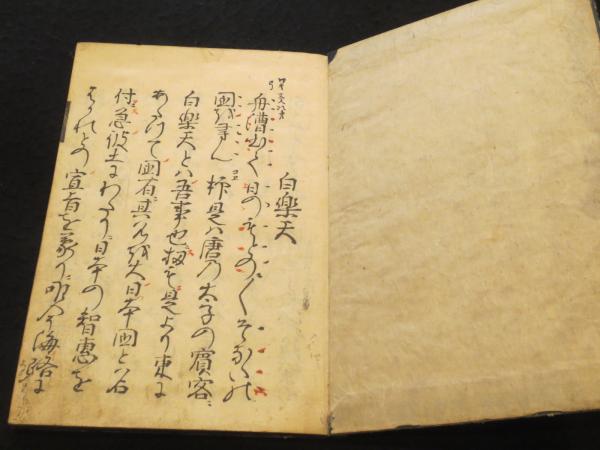 白樂天
舟漕出て日のもとの〳〵そなたの
國を尋ん抑是ハ唐の太子の賓客
白樂天とハ吾事也扨も是より東に
あたつて國有其名を大日本國と名
付急彼土にわたり日本の智惠を
はかれとの宣旨を蒙り唯今海路に